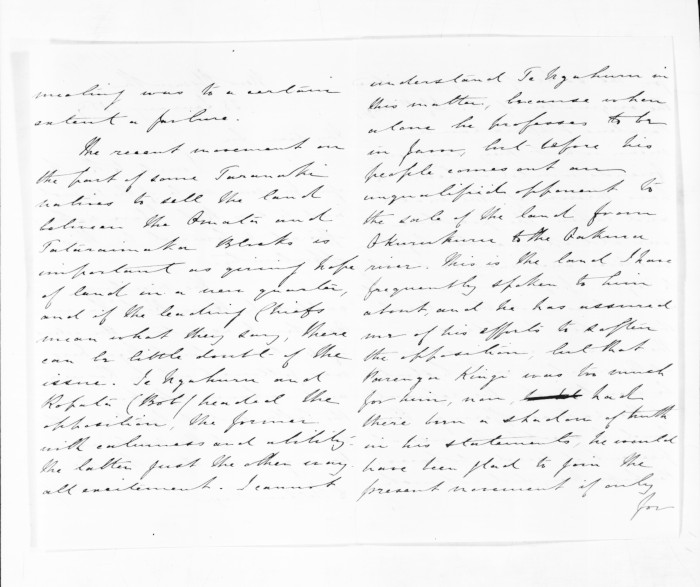 meeting was to a certain
extent a failure.
The recent movement on
the part of some Taranaki
natives to sell the land
between the Omata and
Tataraimaka Blocks is
important as giving hope
of land in a new quarter,
and if the leading Chiefs
mean what they say, there
can be little doubt of the
issue. Te Ngahuru and
Ropata (Bob) headed the
opposition, the former
with calmness and ability,
the latter just the other way
all excitement. I cannot
understand Te Ngahuru in
this matter, because when
alone he professes to be
in favor, but before his
people comes out an
unqualified opponent to
the sale of the land from
Okurukuru to the Oakura
river. This is the land I have
frequently spoken to him
about, and he has assured
me of his efforts to soften
the opposition, but that
Parenga Kingi was too much
for him, now, had
there been a shadow of truth
in his statements, he would
have been glad to join the
present movement if only
for